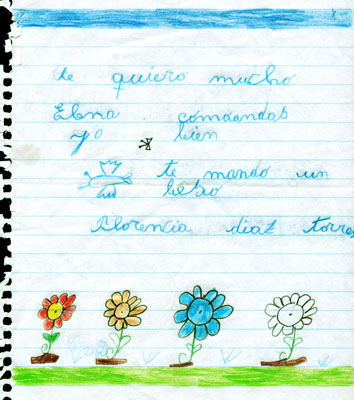 te quiero mucho
Elna comoandas
yo bien
te mando un
beso
Florencia diaz torres